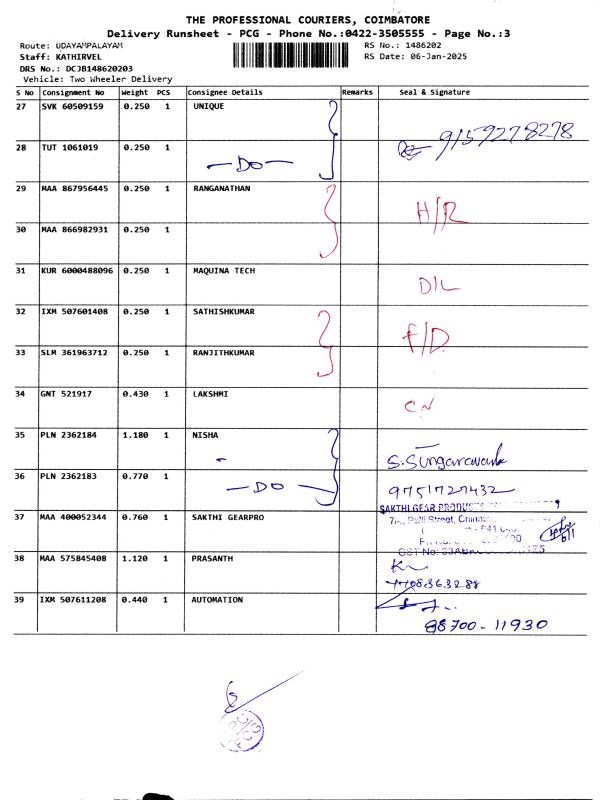 THE PROFESSIONAL COURIERS, COIMBATORE
Delivery Runsheet - PCG - Phone No.:0422-3505555 - Page No.:3
Route: UDAYAMPALAYAM RS No.: 1486202
Staff: KATHIRVEL RS Date: 06-Jan-2025
DRS No.: DCJB148620203
Vehicle: Two Wheeler Delivery
S No Consignment No Weight PCS Consignee Details Remarks Seal & Signature
27 SVK 60509159 0.250 1 UNIQUE
9159278278
28 TUT 1061019 0.250 1
—DO—
29 MAA 867956445 0.250 1 RANGANATHAN
H/R
30 MAA 866982931 0.250 1
31 KUR 6000488096 0.250 1 MAQUINA TECH
D/L
32 IXM 507601408 0.250 1 SATHISHKUMAR
F/D.
33 SLM 361963712 0.250 1 RANJITHKUMAR
34 GNT 521917 0.430 1 LAKSHMI
CN
35 PLN 2362184 1.180 1 NISHA
36 PLN 2362183 0.770 1
—DO— 9751727432
SAKTHI GEAR PRODUCTS
37 MAA 400052344 0.760 1 SAKTHI GEARPRO
Street,
GST No:
38 MAA 575845408 1.120 1 PRASANTH
39 IXM 507611208 0.440 1 AUTOMATION
98700-11930